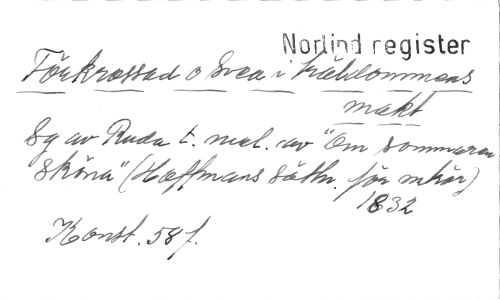 Norlind register
Förkrossad o Svea i träldommens
makt
Sg av Ruda t. mel. av "Om sommaren
sköna" (Hæffmans sättn. för mkör)
1832
Konst. 58 f.